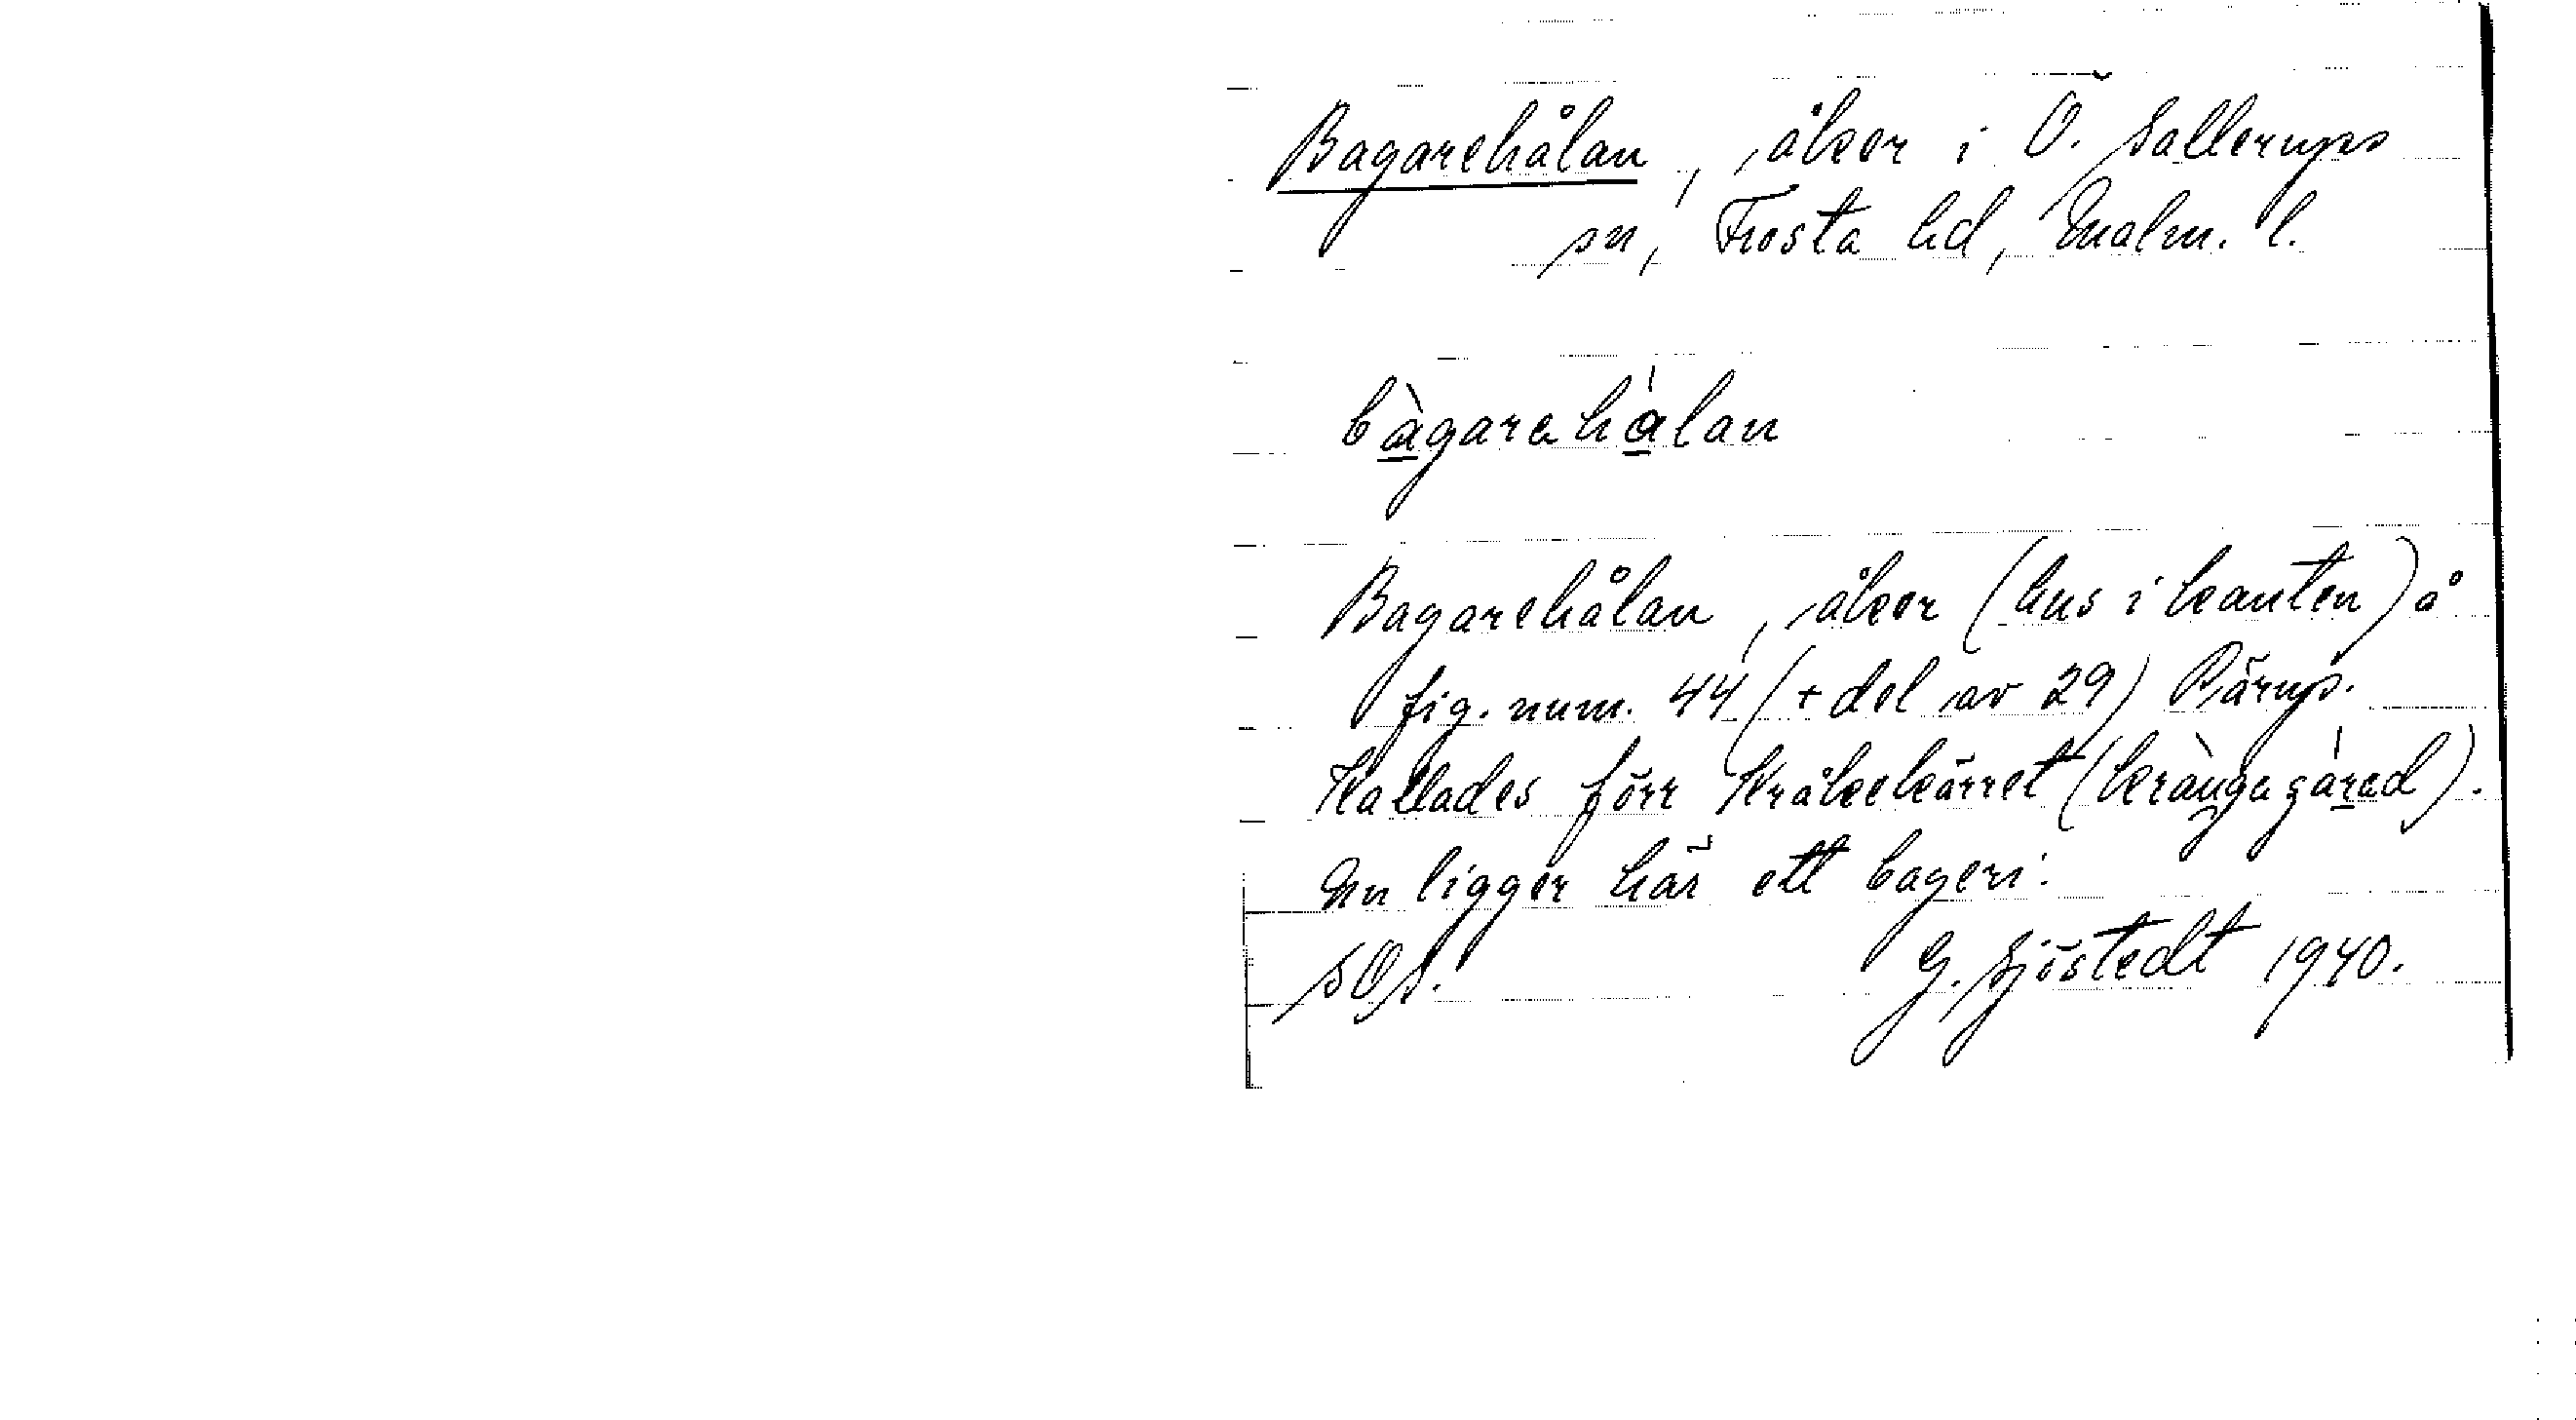 Bagarehålan, åker i Ö. Sallerups
sn, Frosta hd, Malm. l.
bàgarehálan
Bagarehålan, åker (hus i kanten) å
fig. num. 44 (+ del av 29) Rärup.
Kallades förr Kråkekärret (
Nu ligger här ett bageri.
SOS. G. Sjöstedt 1940.